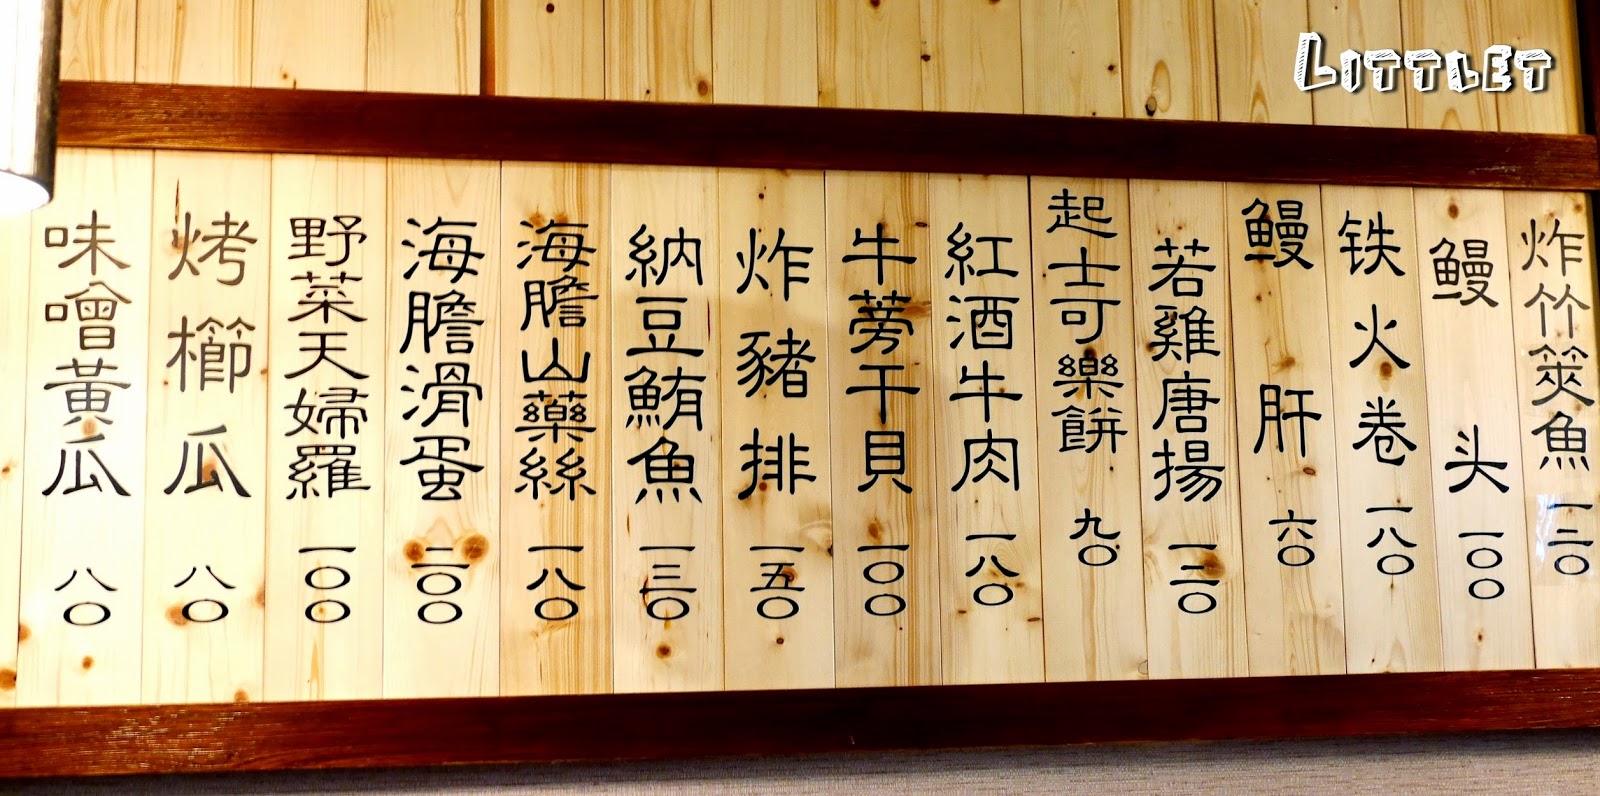 LITTLET
炸竹筴魚 一二〇
鳗头 一〇〇
铁火卷 一八〇
鳗肝 六〇
若雞唐揚 一二〇
起士可樂餅 九〇
紅酒牛肉 一八〇
牛蒡干貝 一〇〇
炸豬排 一五〇
納豆鮪魚 一三〇
海膽山藥絲 一八〇
海膽滑蛋 二〇〇
野菜天婦羅 一〇〇
烤櫛瓜 八〇
味噌黃瓜 八〇